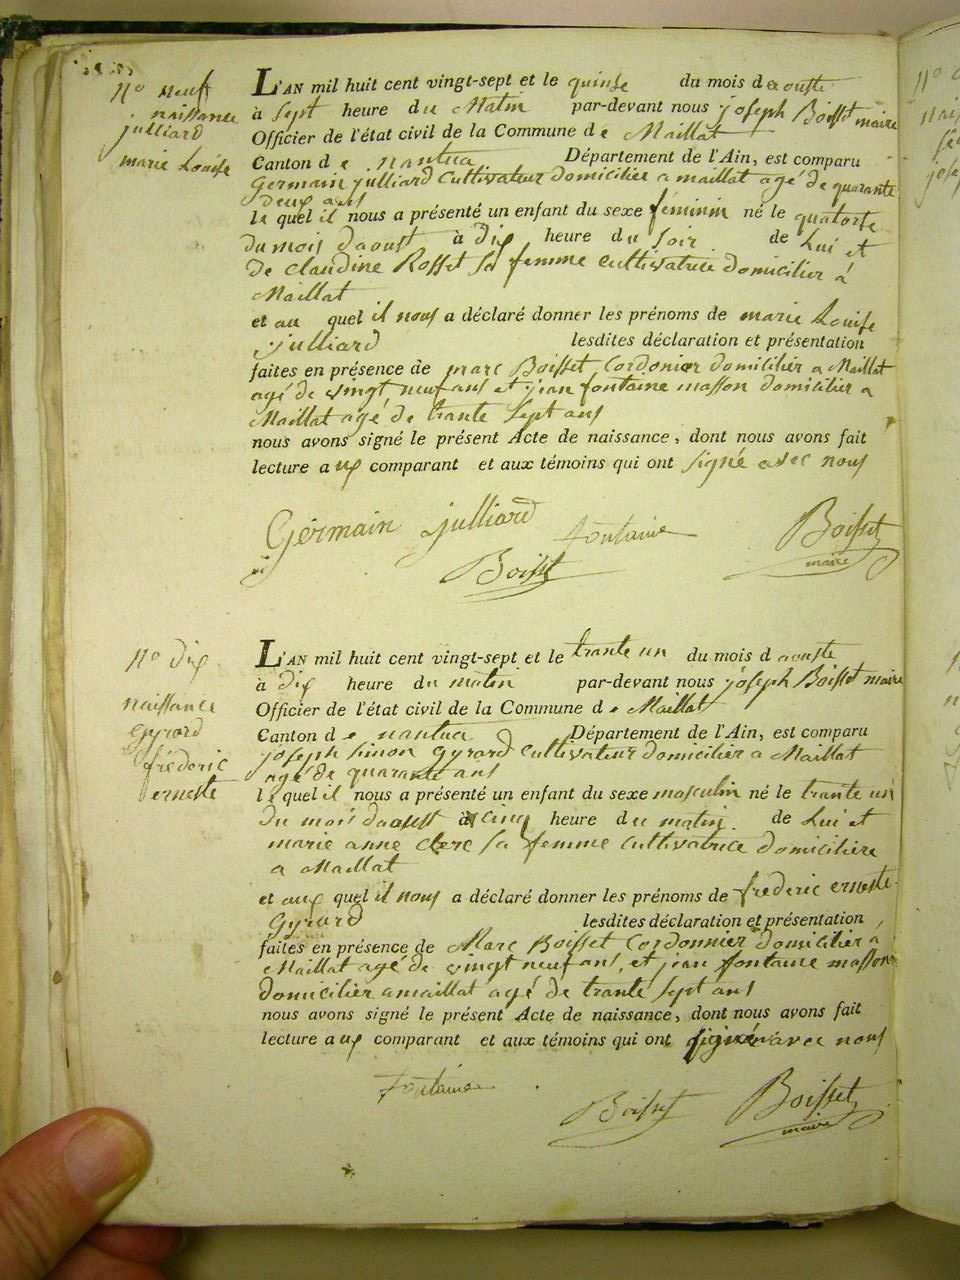 N° neuf
naissance
julliard
marie Louise
L'AN mil huit cent vingt-sept et le quinse du mois d aouste
à sept heure du Matin par-devant nous joseph Boisset maire
Officier de l'état civil de la Commune de Maillat
Canton de nantua Département de l'Ain, est comparu
Germain julliard Cultivateur domicilier a maillat agé de quarante
deux ans
le quel il nous a présenté un enfant du sexe féminin né le quatorse
du mois daoust à dix heure du soir de Lui et
de claudine Rosset sa femme cultivatrice domicilier à
Maillat
et au quel il nous a déclaré donner les prénoms de marie Louise
julliard lesdites déclaration et présentation
faites en présence de marc Boisset Cordonier domicilier a Maillat
agé de vingt neuf ans et jean fontaine masson domicilier a
Maillat agé de trante sept ans
nous avons signé le présent Acte de naissance, dont nous avons fait
lecture aux comparant et aux témoins qui ont signé avec nous
Germain julliard fontaine Boisset
Boisset maire
N° dix
naissance
gyrard
fréderic
erneste
L'AN mil huit cent vingt-sept et le trante un du mois d aouste
à dix heure du matin par-devant nous joseph Boisset maire
Officier de l'état civil de la Commune de Maillat
Canton de nantua Département de l'Ain, est comparu
joseph simon gyrard cultivateur domicilier a Maillat
agé de quarante ans
le quel il nous a présenté un enfant du sexe masculin né le trante un
du mois daoust à cinq heure du matin. de Lui et
marie anne clerc sa femme cultivatrice domicilière
a Maillat
et aux quel il nous a déclaré donner les prénoms de frederic erneste
gyrard lesdites déclaration et présentation
faites en présence de Marc Boisset Cordonnier domicilier à
Maillat agé de vingt neuf ans, et jean fontaine masson
domicilier a maillat agé de trante sept ans
nous avons signé le présent Acte de naissance, dont nous avons fait
lecture aux comparant et aux témoins qui ont signé avec nous
fontaine
Boisset Boisset
maire